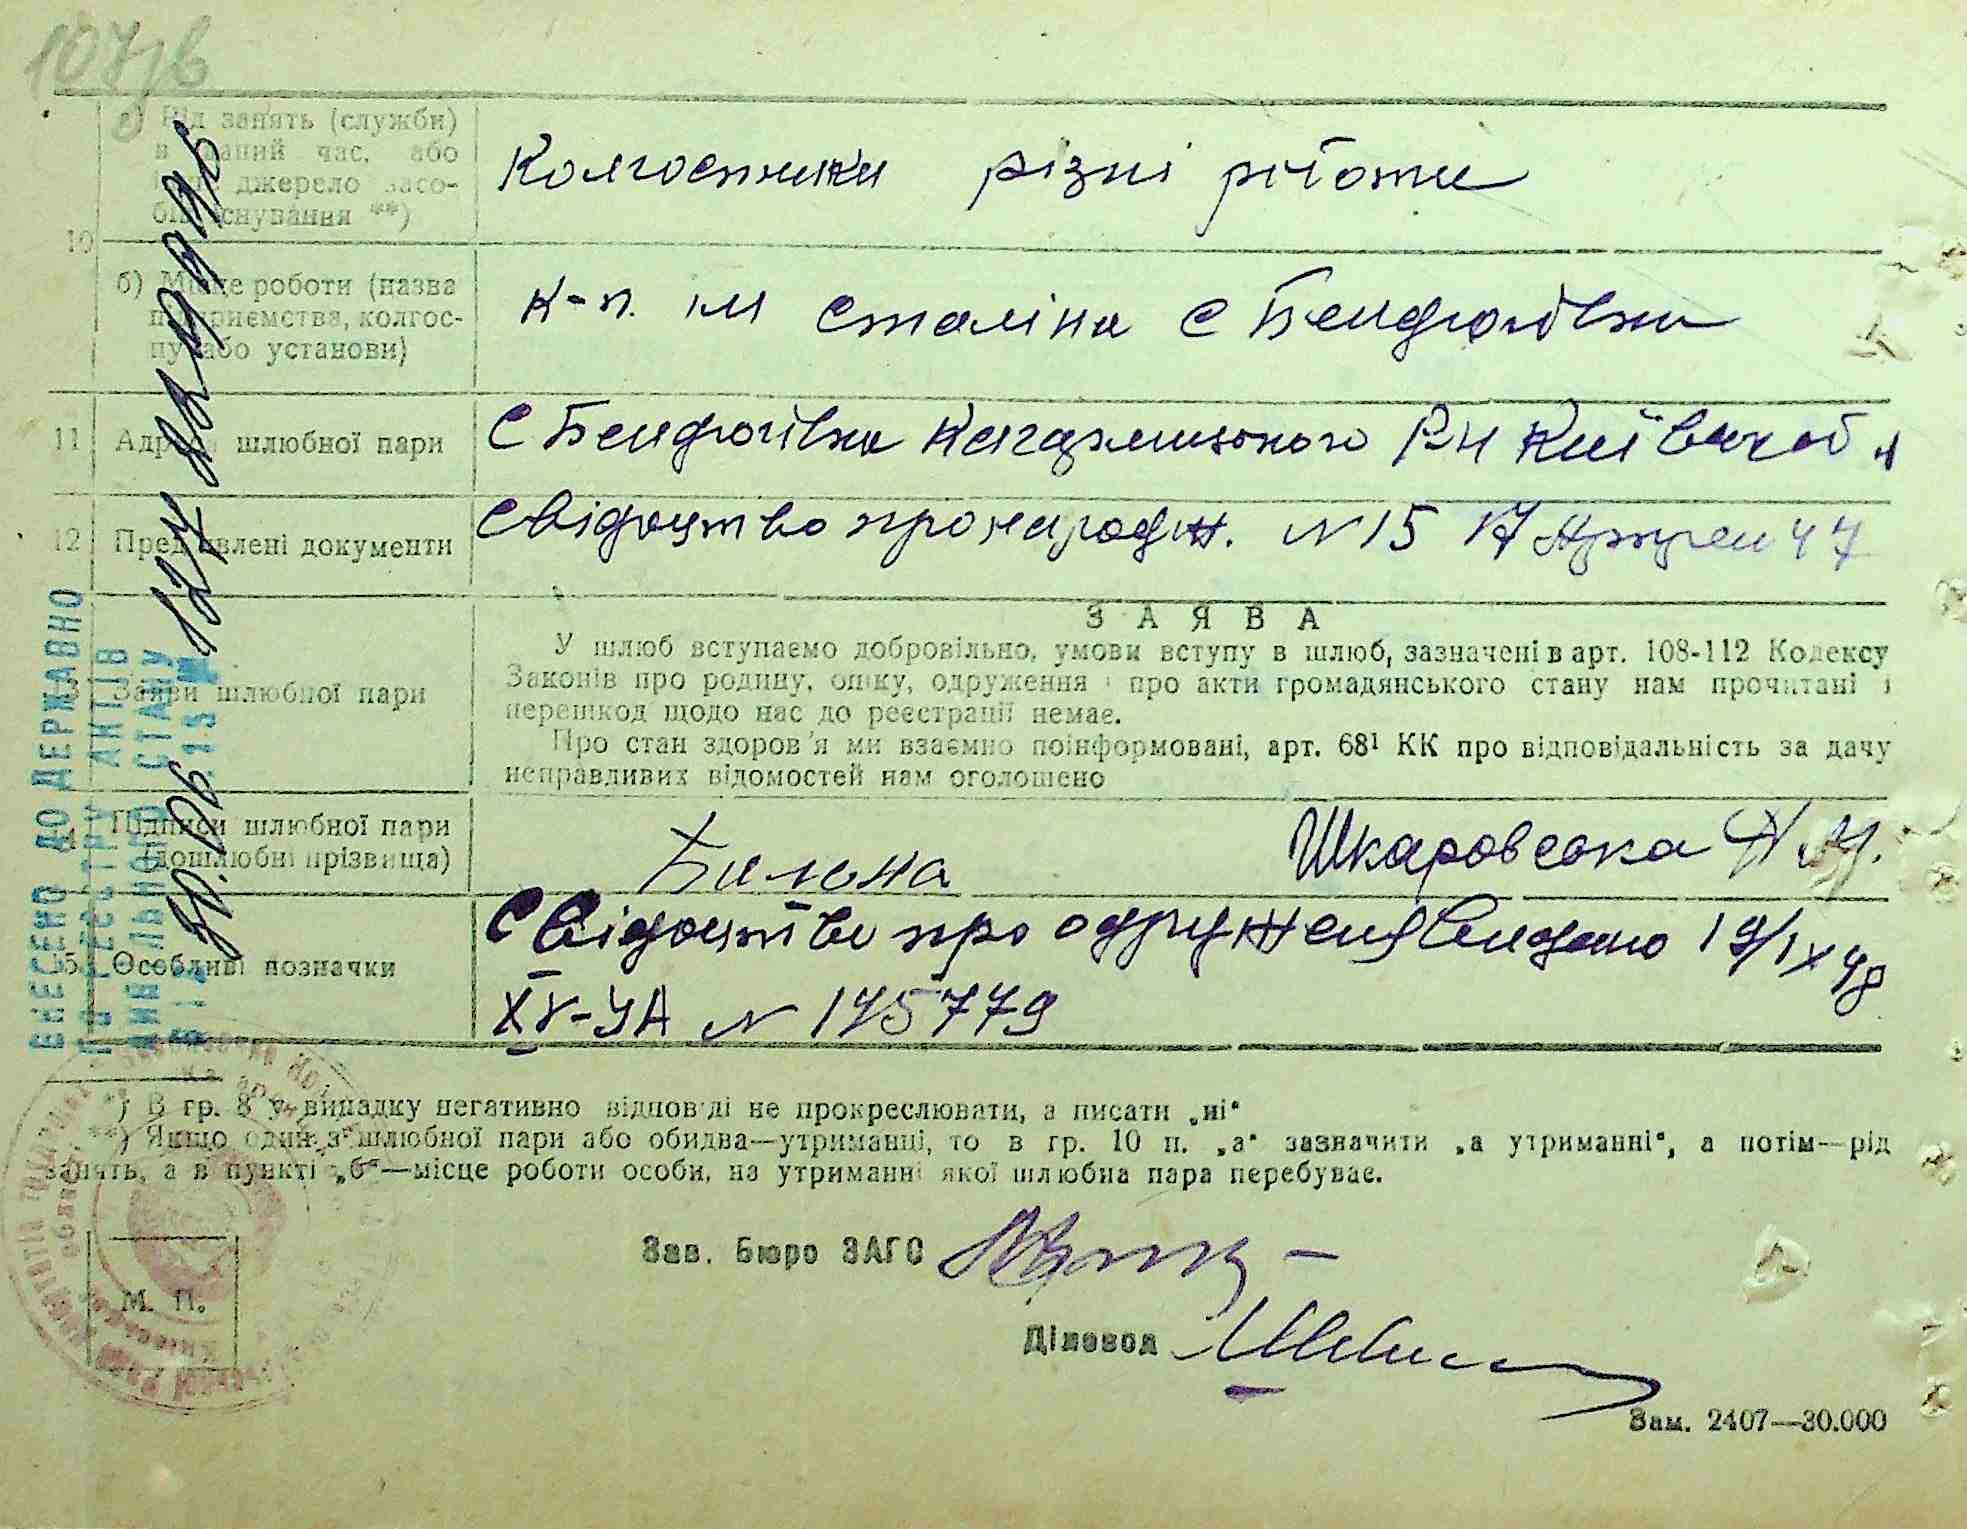 107зв
10 а) Рід занять (служби)
в даний час, або
джерело засо-
бів існування **)
Колгоспники різні роботи
б) Місце роботи (назва
підприємства, колгос-
пу або установи)
к-п. ім Сталіна с Бендюгівка
11 Адреса шлюбної пари
с Бендюгівка Кагарлицького Р-н Київської обл
12 Пред'явлені документи
Свідоцтво про народж. N 15
ЗАЯВА
13 Заяви шлюбної пари
У шлюб вступаємо добровільно, умови вступу в шлюб, зазначені в арт. 108-112 Кодексу
Законів про родину, опіку, одруження і про акти громадянського стану нам прочитані і
перешкод щодо нас до реєстрації немає.
Про стан здоров'я ми взаємно поінформовані, арт. 68¹ КК про відповідальність за дачу
неправливих відомостей нам оголошено
14 Підписи шлюбної пари
(дошлюбні прізвища)
Шкаровська
15 Особливі позначки
Свідоцтво про одруження видано 19/IX 48
XV-УА N 175779
ВНЕСЕНО ДО ДЕРЖАВНОГО
РЕЄСТРУ АКТІВ
ЦИВІЛЬНОГО СТАНУ
ВІД 20.06.2015 №
*) В гр. 8 у випадку негативно відповіді не прокреслювати, а писати „ні“
**) Якщо один з шлюбної пари або обидва—утриманці, то в гр. 10 п. „а“ зазначити „а утриманні“, а потім—рід
занять, а в пункті „б“—місце роботи особи, на утриманні якої шлюбна пара перебуває.
Зав. Бюро ЗАГС
М. П.
Діловод
Зам. 2407—30.000